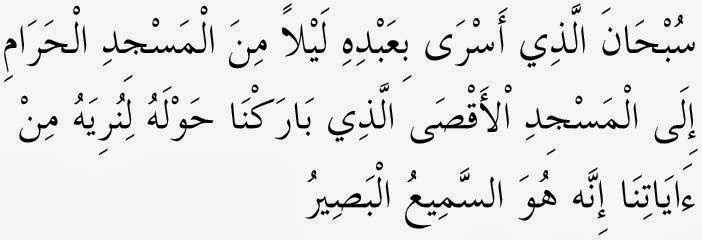 سُبْحَانَ الَّذِي أَسْرَى بِعَبْدِهِ لَيْلاً مِنَ الْمَسْجِدِ الْحَرَامِ
إِلَى الْمَسْجِدِ اْلأَقْصَى الَّذِي بَارَكْنَا حَوْلَهُ لِنُرِيَهُ مِنْ
ءَايَاتِنَا إِنَّه هُوَ السَّمِيعُ الْبَصِيرُ